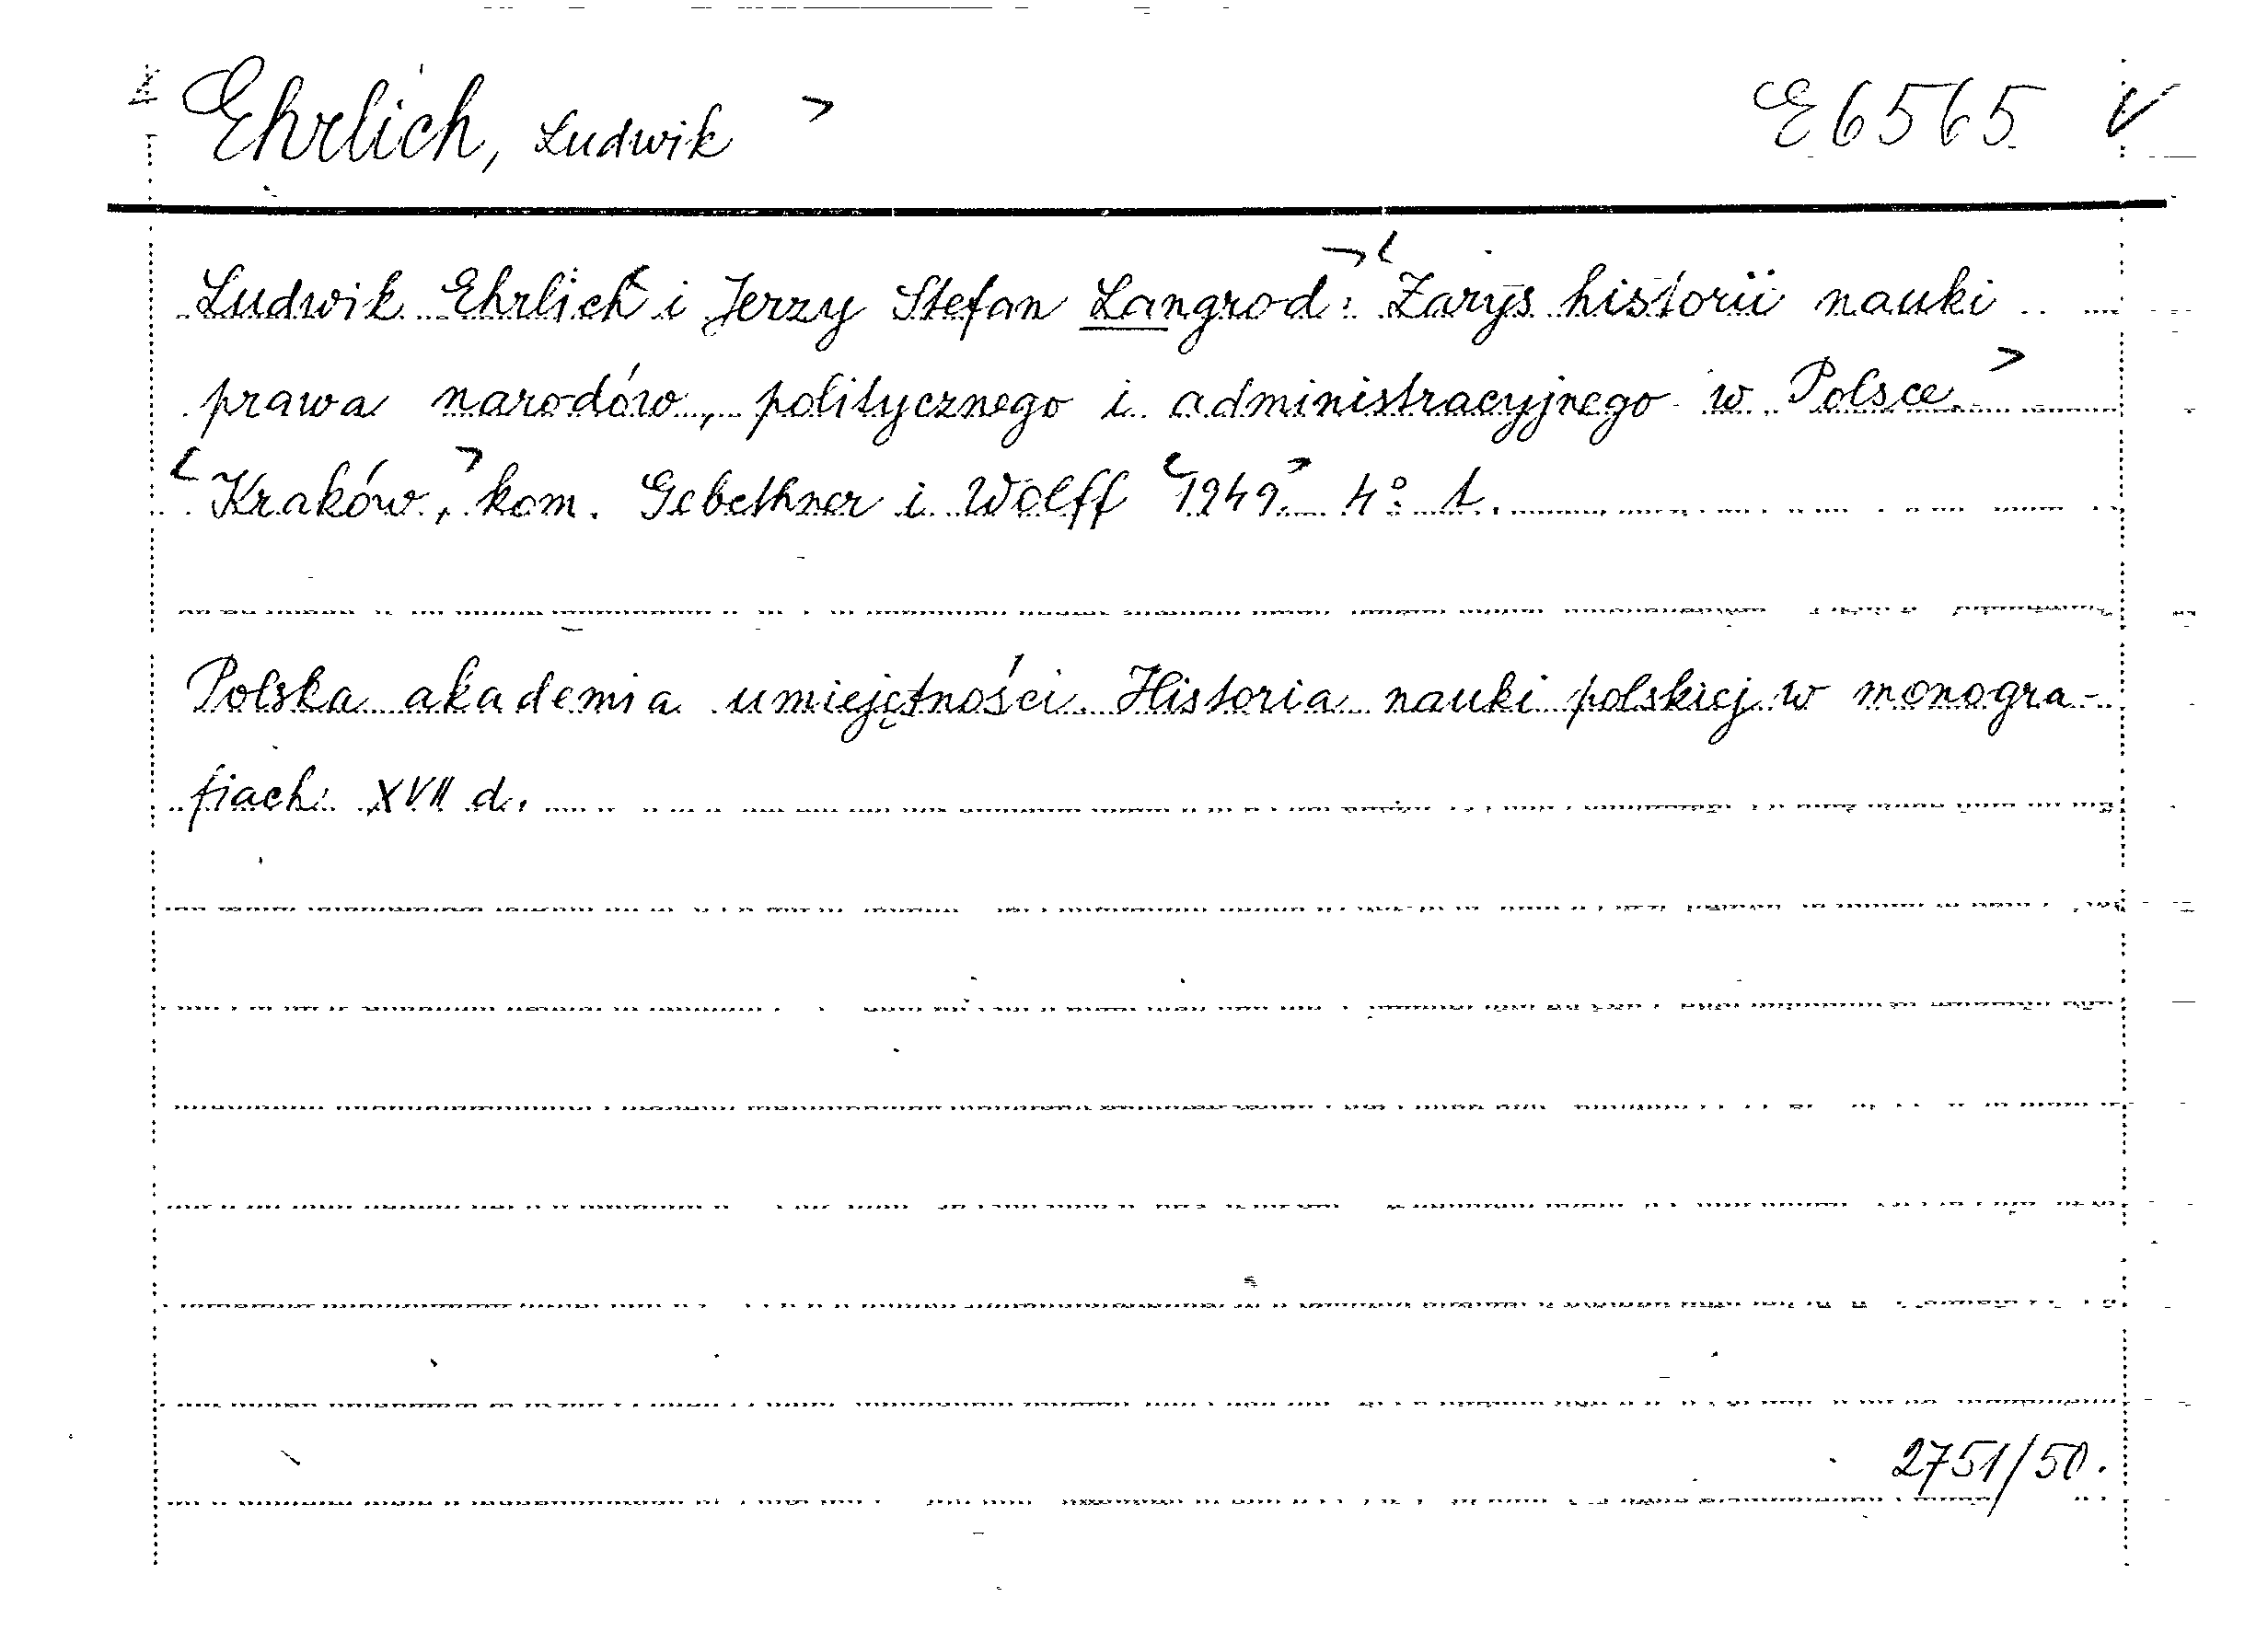 Ehrlich, Ludwik E 6565 V
Ludwik Ehrlich i Jerzy Stefan Langrod: Zarys historii nauki
prawa narodów, politycznego i administracyjnego w Polsce.
Kraków, kom. Gebethner i Wolff 1949. 4° 1.
Polska akademia umiejętności. Historia nauki polskiej w monogra-
fiach. XVII d.
2751/50.